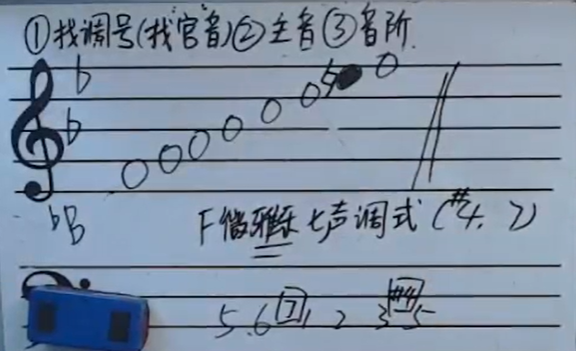 ①找调号(找宫音)②主音③音阶.
♭B
F徵雅乐七声调式(#4、7)
5 6 7 1 2 3 #4 5